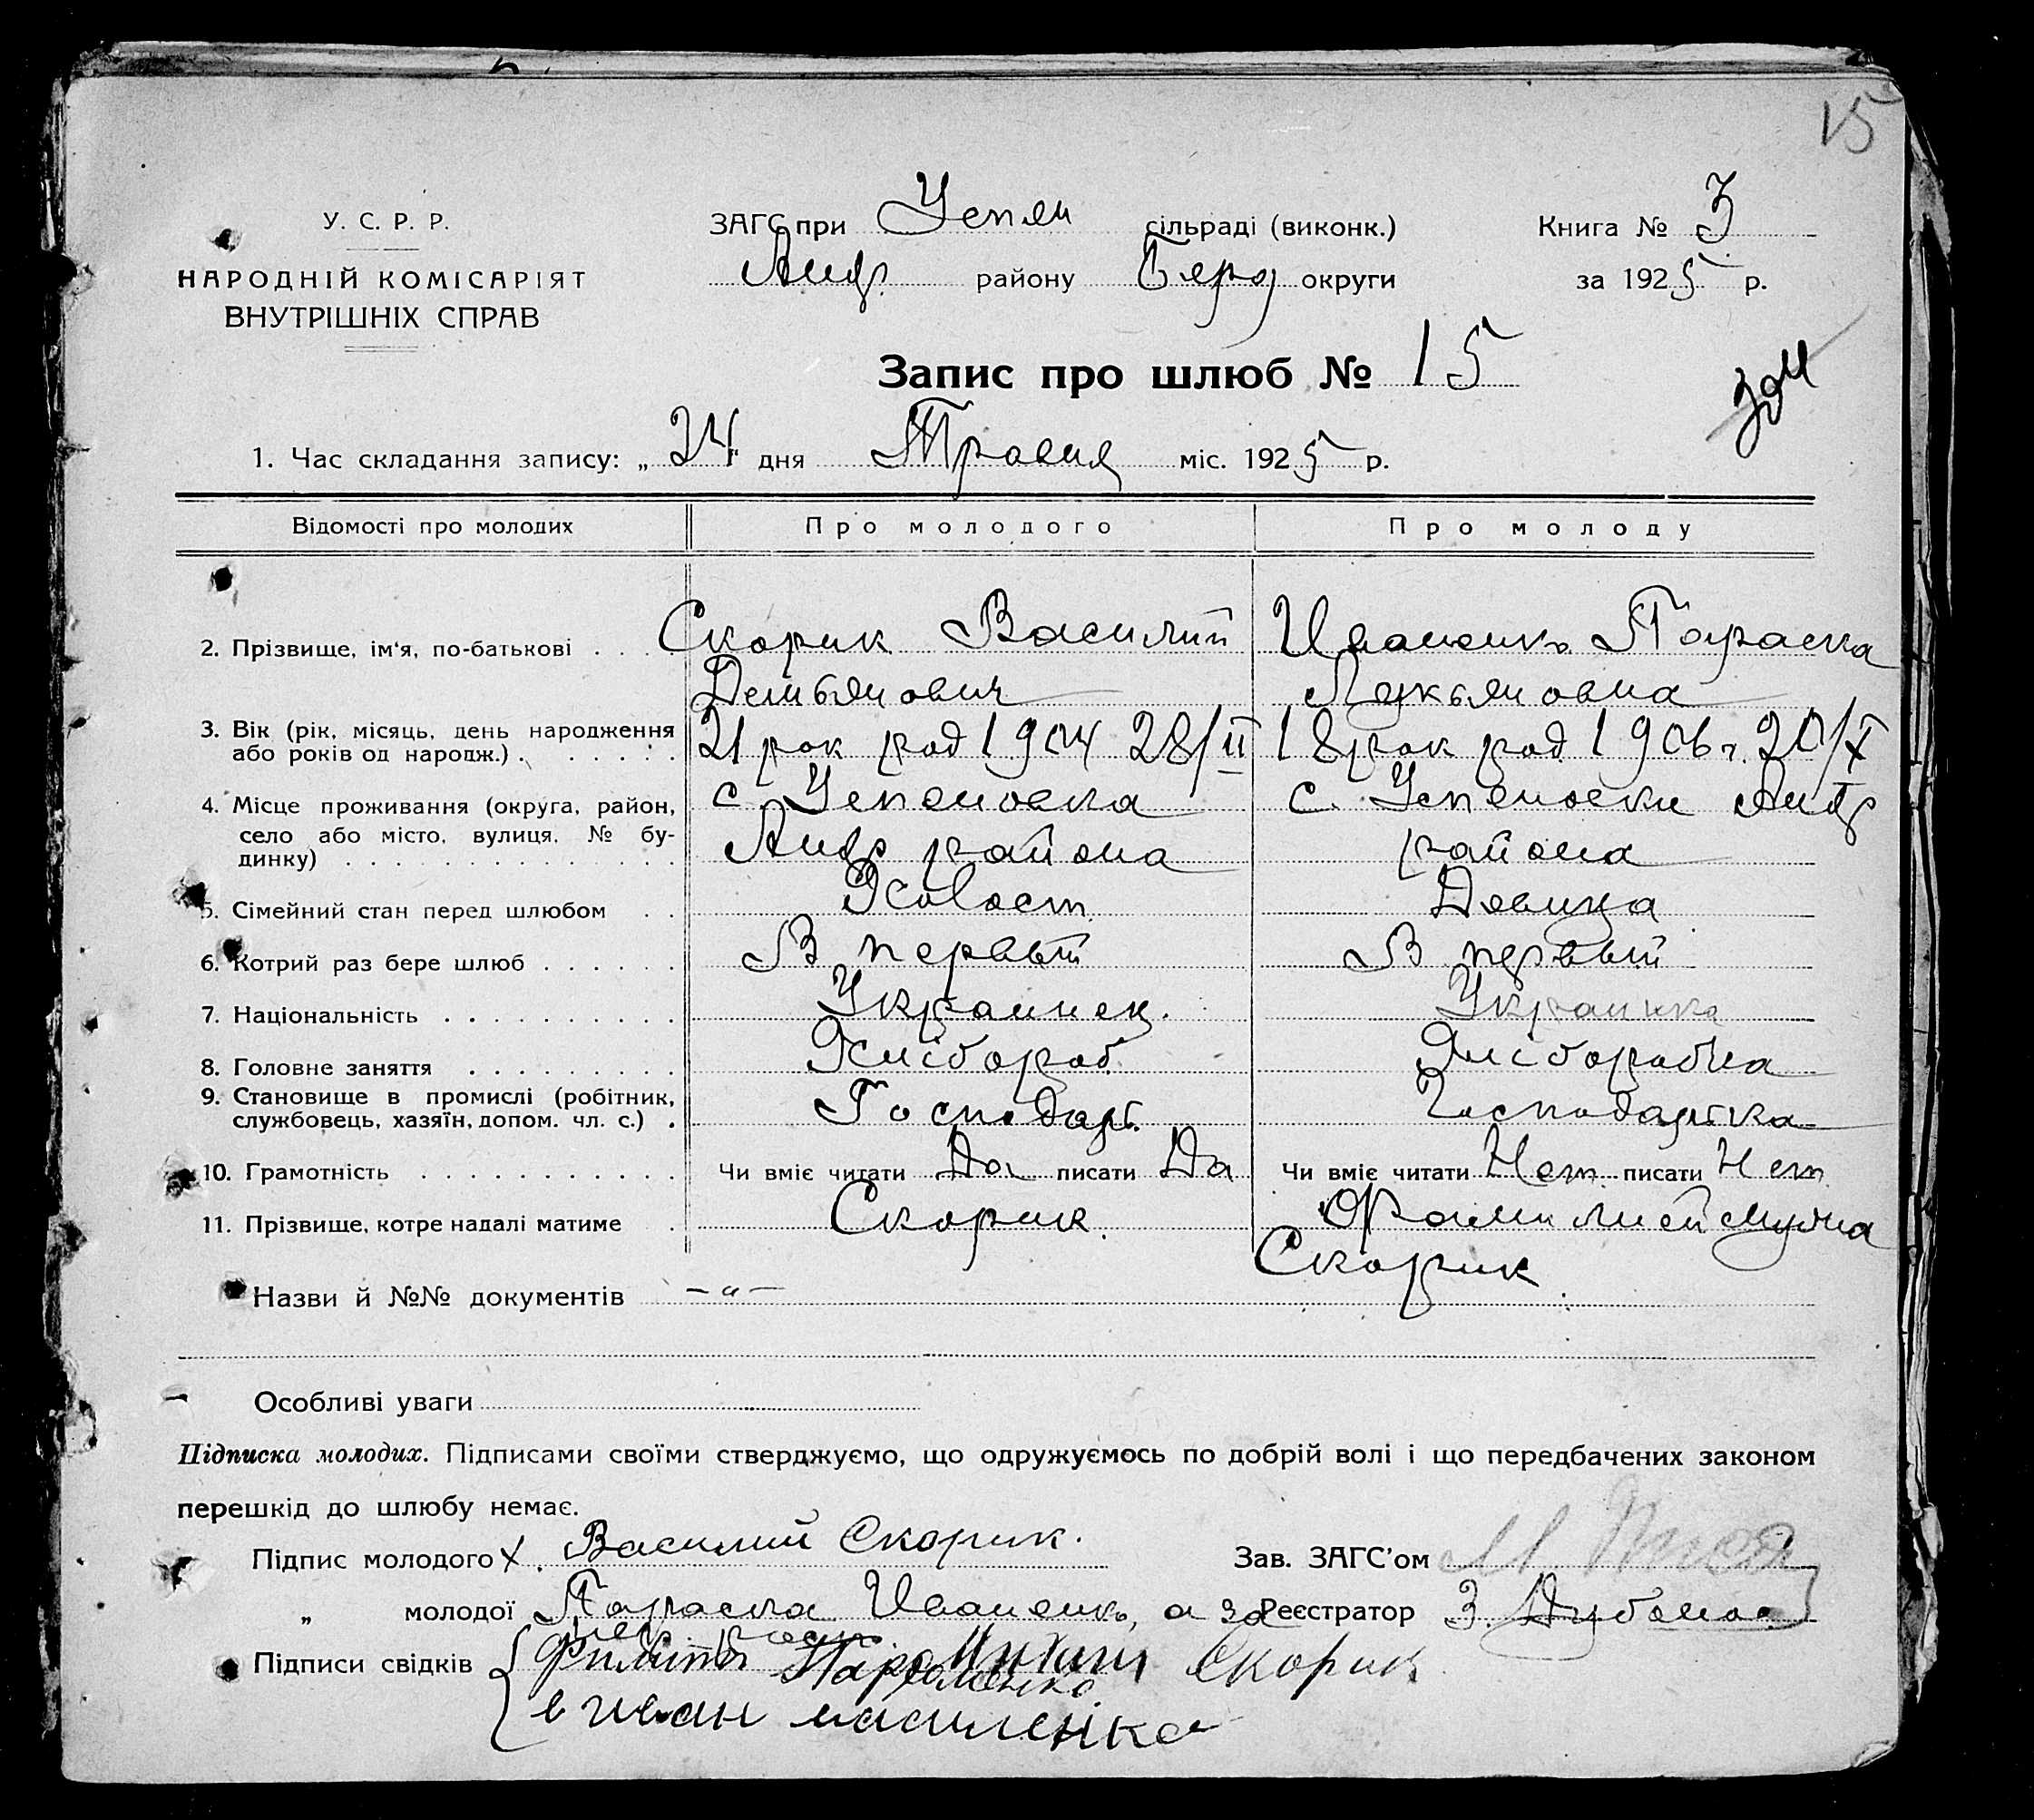 15
У. С. Р. Р.
НАРОДНІЙ КОМІСАРІЯТ
ВНУТРІШНІХ СПРАВ
ЗАГС при Успен сільраді (виконк.)
Андр. району Бердр округи
Книга № 3
за 1925 р.
Запис про шлюб № 15
1. Час складання запису: „24“ дня Травня міс. 1925 р.
Відомості про молодих Про молодого Про молоду
2. Прізвище, ім‘я, по-батькові . . . Скорик Василий Иваненко Параска
Демьянович Лукьяновна
3. Вік (рік, місяць, день народження 21 рок род 1904 28/II 18 рок род 1906 г. 20/X
або років од народж.) . . . . . .
4. Місце проживання (округа, район, с. Успеновка с. Успеновки Андр
село або місто, вулиця, № бу-
динку) . . . . . . . . . . . . . . Андр района района
5. Сімейний стан перед шлюбом . . Холост Девица
6. Котрий раз бере шлюб . . . . . . В первый В первый
7. Національність . . . . . . . . . . Украинец. Украинка
8. Головне заняття . . . . . . . . . Хлібороб Хліборобка
9. Становище в промислі (робітник, Господарь Господарька
службовець, хазяїн, допом. чл. с.) .
10. Грамотність . . . . . . . . . . . Чи вміє читати Да писати Да Чи вміє читати Нет писати Нет
11. Прізвище, котре надалі матиме . Скорик. Фамилией мужа
Скорик
Назви й №№ документів –„–
Особливі уваги
Підписка молодих. Підписами своїми стверджуємо, що одружуємось по добрій волі і що передбачених законом
перешкід до шлюбу немає.
Підпис молодого х. Василий Скорик.
Зав. ЗАГС’ом М
„ молодої Параска Иваненко, а за
Реєстратор З. Дубова
Підписи свідків Филипп Пархоменко Скорик
иван василенко